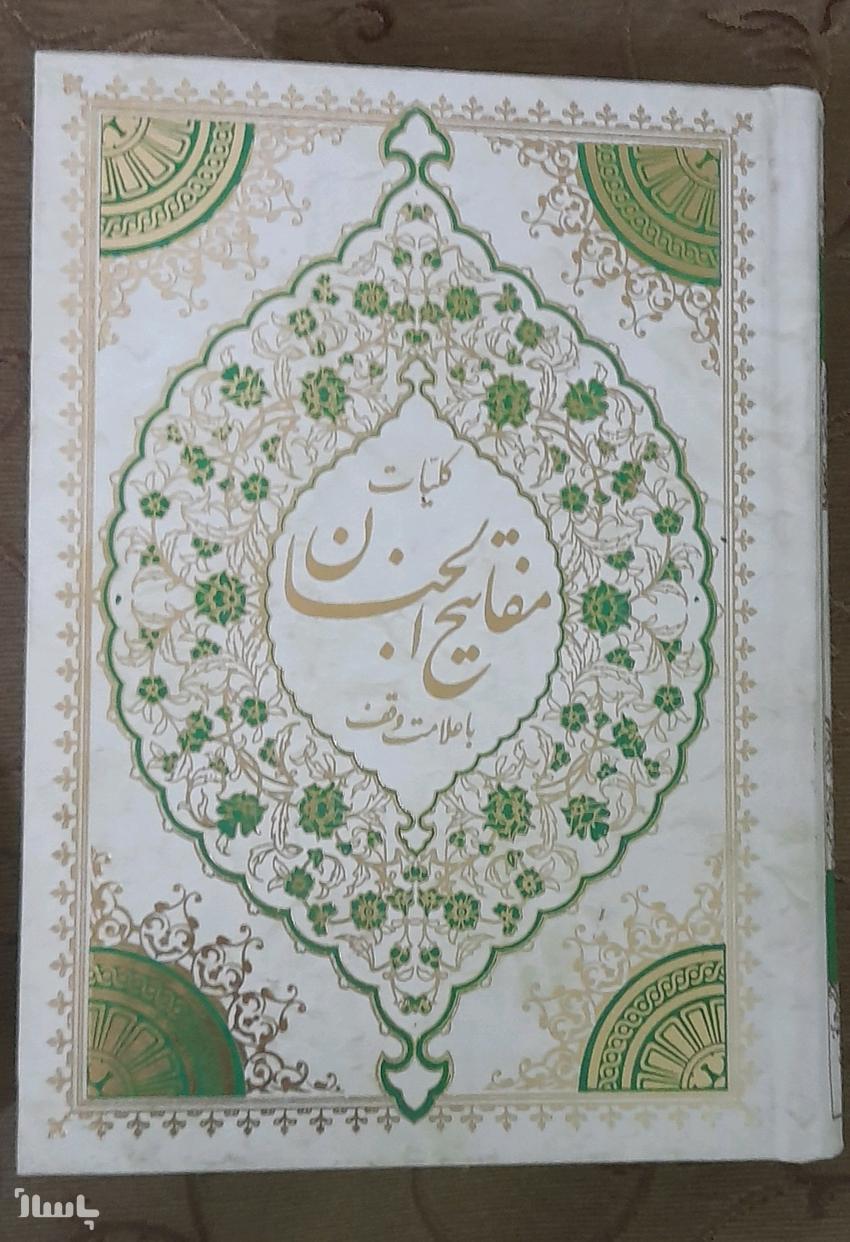 کلیّات
مفاتیح الجنان
با علامت وقف
پاساژ